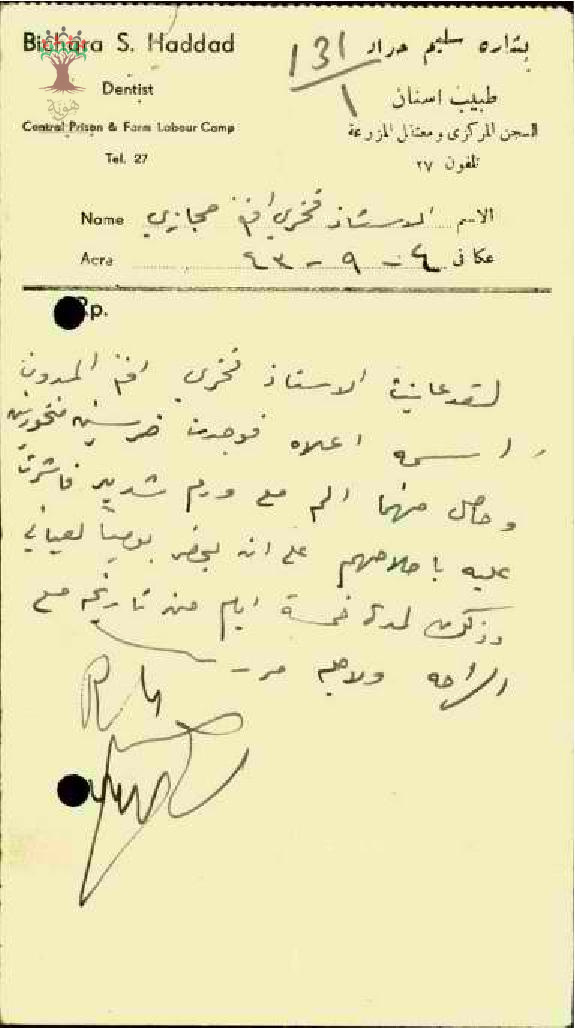 Bichara S. Haddad
بشاره سليم حداد
131
1
Dentist
طبيب اسنان
هوية
Central Prison & Farm Labour Camp
السجن المركزي ومعتقل المزرعة
Tel. 27
تلفون ٢٧
Name الاستاذ فخري افندي حجازي الاسم
Acra ٤ - ٩ - ٤٣ عكا في
Rp.
لقد عاينت الاستاذ فخري المدون
اسمه اعلاه فوجدت ضرسين منخورين
وحاصل منهما الم مع ورم شديد فاشرت
عليه على ان يحضر يومياً لعيادتي
وذلك لمدة خمسة ايام من تاريخه مع
الراحه ولاجله